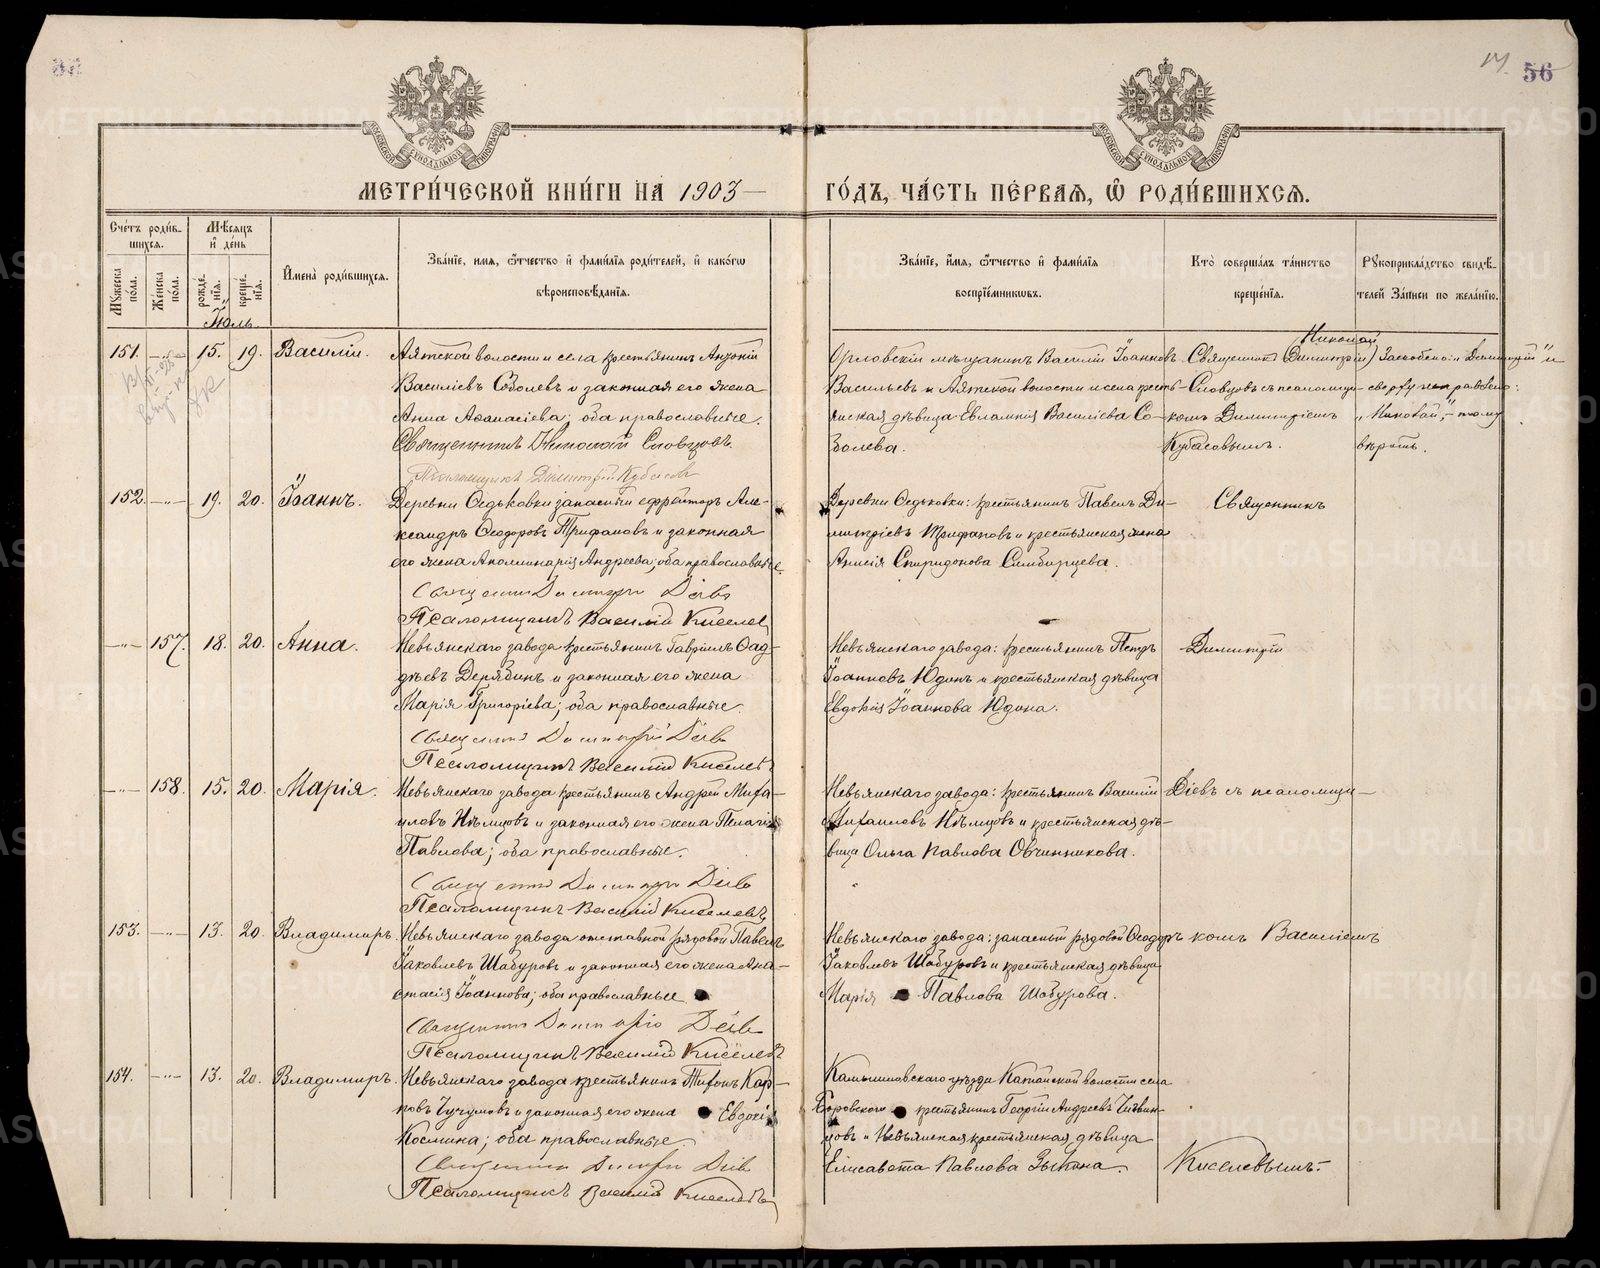 56
МЕТРИ́ЧЕСКОЙ КНИ́ГИ НА 1903 — ГО́ДЪ, ЧА́СТЬ ПЕ́РВАЯ, Ѡ РОДИ́ВШИХСЯ.
МОСКОВСКОЙ СѴНОДАЛЬНОЙ ТИПОГРАФІИ
МОСКОВСКОЙ СѴНОДАЛЬНОЙ ТИПОГРАФІИ
Сче́тъ роди́в-
шихся.
Му́жеска по́ла.
Же́нска по́ла.
Мѣ́сяцъ
и де́нь
рожде́-
нія.
креще́-
нія.
Имена̀ роди́вшихся.
Зва́ніе, имя, ѻ́тчество и фами́лія роди́телей, и како́гѡ
вѣроисповѣ́данія.
Зва́ніе, и́мя, ѻ́тчество и фами́лія
воспріе́мникѡвъ.
Кто̀ соверша́лъ та́инство
креще́нія.
Рукоприкла́дство свидѣ́-
телей за́писи по жела́нію.
Іюль.
151. —"— 15. 19. Василій.
Аятской волости и села крестьянинъ Антоній
Василіевъ Соболевъ и законная его жена
Анна Аѳанасіева; оба православные.
Священникъ Николай Словцовъ
Псаломщикъ Димитрій Кубасовъ
Орловскій мѣщанинъ Василій Іоанновъ
Васильевъ и Аятской волости и села кресть-
янская дѣвица Евлампія Василіева Со-
болева.
Николай
Священникъ (Димитрій)
Словцовъ съ псаломщи-
комъ Димитріемъ
Кубасовымъ.
Зачеркнуто: "Димитрій" и
сверху исправлено:
"Николай", – тому
вѣрить.
152. —"— 19. 20. Іоаннъ.
Деревни Ѳедьковки запасный ефрейторъ Але-
ксандръ Ѳеодоровъ Трифановъ и законная
его жена Аполлинарія Андреева; оба православные.
Священникъ Димитрій Діевъ
Псаломщикъ Василій Киселевъ
Деревни Ѳедьковки: крестьянинъ Павелъ Ди-
митріевъ Трифановъ и крестьянская жена
Анисія Спиридонова Симбирцева.
Священникъ
—"— 157. 18. 20. Анна.
Невьянскаго завода крестьянинъ Гавріилъ Ѳад-
дѣевъ Дерябинъ и законная его жена
Марія Григоріева; оба православные.
Священникъ Димитрій Діевъ
Псаломщикъ Василій Киселевъ
Невьянскаго завода: крестьянинъ Петръ
Іоанновъ Юдинъ и крестьянская дѣвица
Евдокія Іоаннова Юдина.
Димитрій
—"— 158. 15. 20. Марія.
Невьянскаго завода крестьянинъ Андрей Миха-
иловъ Нѣмцовъ и законная его жена Пелагія
Павлова; оба православные.
Священникъ Димитрій Діевъ
Псаломщикъ Василій Киселевъ
Невьянскаго завода: крестьянинъ Василій
Михаиловъ Нѣмцовъ и крестьянская дѣ-
вица Ольга Павлова Овчинникова.
Діевъ съ псаломщи-
153. —"— 13. 20. Владимиръ.
Невьянскаго завода отставной рядовой Павелъ
Іаковлевъ Шабуровъ и законная его жена Ана-
стасія Іоаннова; оба православные
Священникъ Димитрій Діевъ
Псаломщикъ Василій Киселевъ
Невьянскаго завода: запасный рядовой Ѳеодоръ
Іаковлевъ Шабуровъ и крестьянская дѣвица
Марія Павлова Шабурова.
комъ Василіемъ
154. —"— 13. 20. Владимиръ.
Невьянскаго завода крестьянинъ Тихонъ Кар-
повъ Чучумовъ и законная его жена Евдокія
Космина; оба православные.
Священникъ Димитрій Діевъ
Псаломщикъ Василій Киселевъ
Камышловскаго уѣзда Катайской волости села
Боровского крестьянинъ Георгій Андреевъ
и Невьянская крестьянская дѣвица
Елисавета Павлова Зыкина.
Киселевымъ.
METRIKI.GASO-URAL.RU